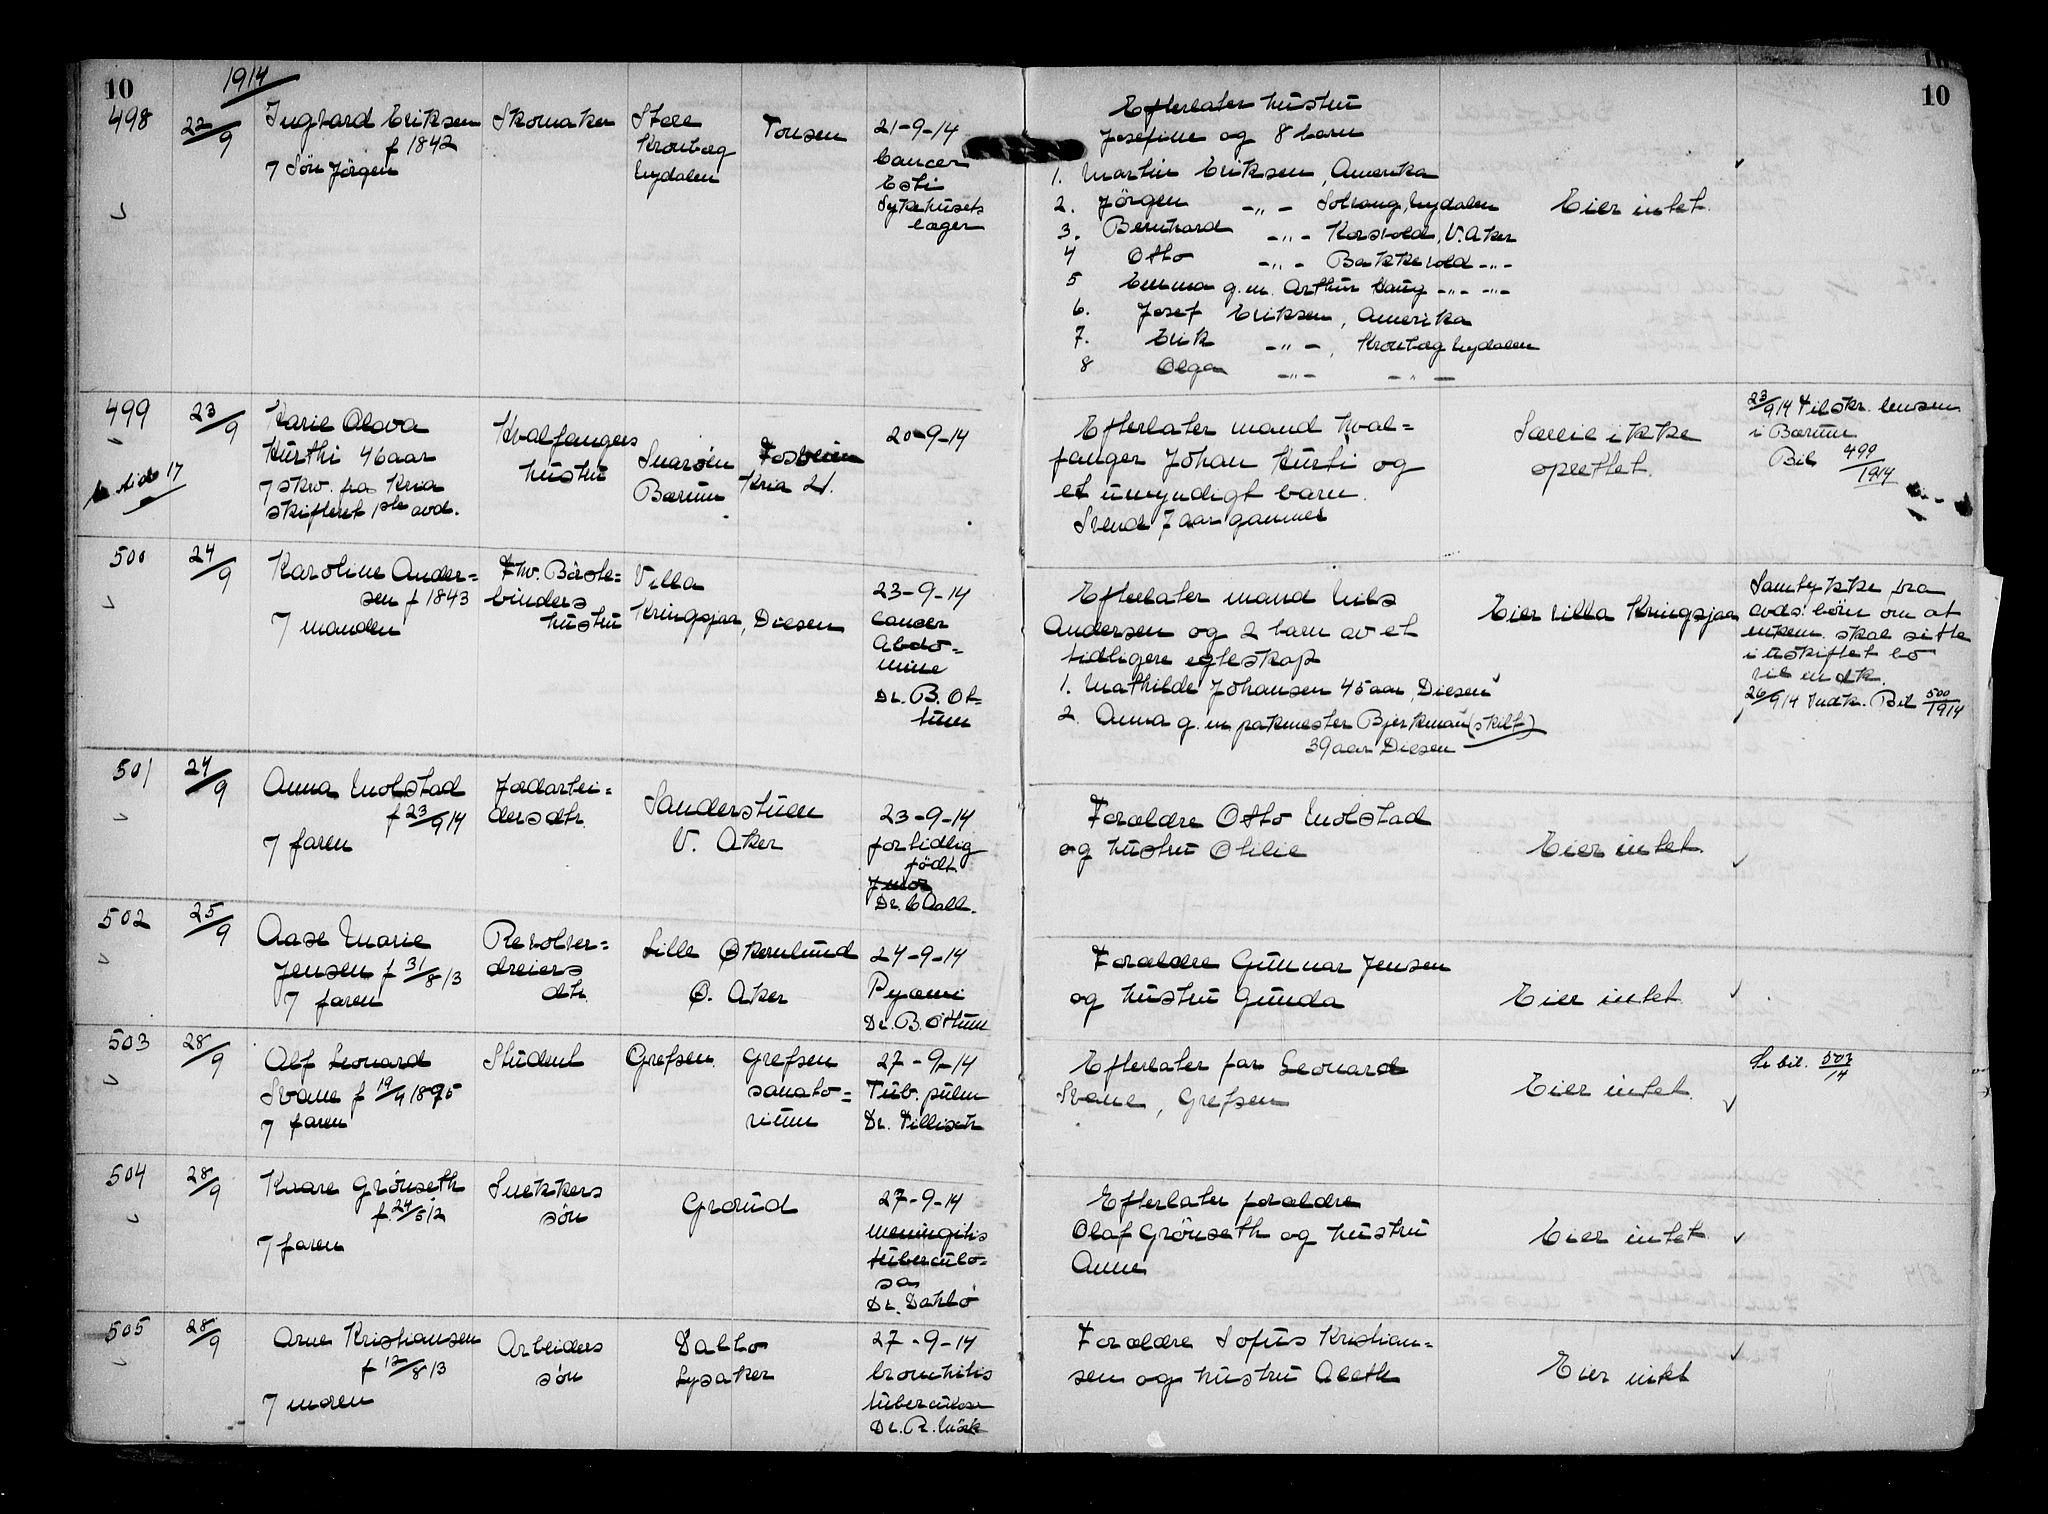 10
1914
10
498
22/9
Ingvard Eriksen
f 1842
7 Søn Jørgen
Skomaker
Kronbæg
Nydalen
Tonsen
21-9-14
Cancer
Sykehusets
læger
Efterlater hustru
Josefine og 8 barn
1. Martin Eriksen, Amerika
2. Jörgen -"- Solvang, Nydalen
3. Bernhard -"- Korsvold, V. Aker
4 Otto -"- Bakkevold -"-
5 Emma g.m. Arthur Haug -"- -"-
6. Josef Eriksen, Amerika
7. Erik -"-, Kronbæg Nydalen
8 Olga -"- -"-
Eier intet.
499
23/9
Karie Olava
Kurthi 46 aar
7 skr. fra Kria
skifteret 1ste avd.
Kvalfangers
hustru
Snarøen
Bærum
Fosveien
Kria 21.
20-9-14
Efterlater mand hval=
fanger Johan Kurti og
et umyndigt barn.
Svend 7 aar gammel
Særeie ikke
oprettet.
23/9 14 Tilskr. lensm
i Bærum
Bil 499/1914
500
24/9
Karoline Ander=
sen f 1843
7 manden
Fhv. Børste=
binders
hustru
Villa
Kringsjaa, Diesen
23-9-14
Cancer
abdo=
mine
Dr. B. Ot-
tum
Efterlater mand Nils
Andersen og 2 barn av et
tidligere egteskap
1. Mathilde Johansen 45 aar, Diesen
2. Anna g.m. pakmester Bjerkman (skilt)
39 aar Diesen
Eier villa Kringsjaa
Samtykke fra
avds. börn om at
enkem. skal sitte
i uskiftet bo
26/9 14 Indk. Bil 500/1914
501
24/9
Anna Molstad
f 23/9 14
7 faren
Jordarbei=
dersdtr.
Sanderstuen
V. Aker
23-9-14
for tidlig
födt.
Dr. C Aall.
Forældre Otto Molstad
og hustru Otilie
Eier intet.
502
25/9
Aase Marie
Jensen f 31/8 13
7 faren
Revolver=
dreiers
dtr.
Lille Økernlund
Ø. Aker
24-9-14
Pyæmi
Dr. B. Ottum
Forældre Gunnar Jensen
og hustru Gunda
Eier intet
503
28/9
Alf Leonard
Svane f 19/9 1895
7 faren
Student
Grefsen.
Grefsen
sanato=
rium
27-9-14
Tub. pulm
Dr. Tillisch
Efterlater far Leonard
Svane, Grefsen
Eier intet.
Se bil. 503/14
504
28/9
Kaare Grönseth
f. 24/5 12
7 faren
Snekkers
søn
Grorud
27-9-14
meningitis
tuberculo=
sa
Dr. Dahlö
Efterlater forældre
Olaf Grönseth og hustru
Anne
Eier intet.
505
28/9
Arne Kristiansen
f 12/8 13
7 moren
Arbeiders
søn
Dalbo
Lysaker
27-9-14
bronchitis
tuberculosa
Dr. R. Mörk
Forældre Sofus Kristian=
sen og hustru Aleth
Eier intet